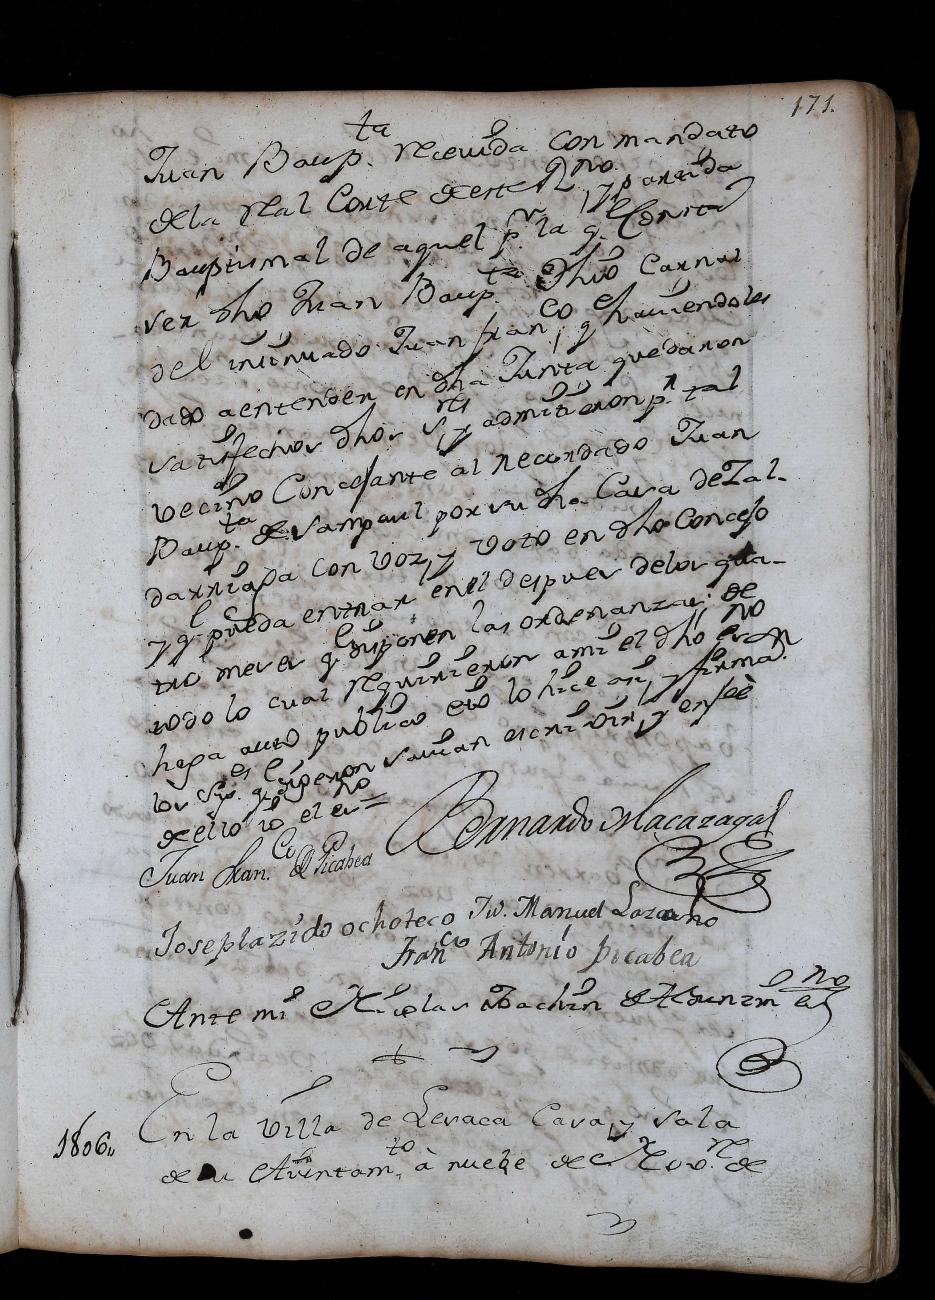 171.
Juan Baup.ta recevida con mandato
de la Real Corte de este R.no y partida
Bauptismal de aquel p.r la q.e Consta
ser dho Juan Baup.ta Hijo Carnal
del insinuado Juan fran.co, y haviendoles
dado a entender en dha Junta quedaron
satisfechos dhos S.res y admitieron p.r tal
vecino Concejante al recordado Juan
Baup.ta de Sampaul por su dha Casa de Zal-
darriaga con voz, y voto en dho Concejo
y q.e pueda entrar en el despues de los qua-
tro meses q.e disponen las ordenanzas: de
todo lo cual requirieron a mi el dho es.no
haga auto publico eio lo hice asi, y firma.n
los S.res q.e dijeron savian escrivir, y en feè
de ello io el es.no =
Bernardo Macazaga
Juan Fran.co de Picabea
Jose plazido ochoteco Jv. Manuel Lozano
Fran.co Antonio picabea
Ante mi Nicolas Joachin de Alduncin es.no
1806,, En la Villa de Lesaca Casa, y sala
de su Aiuntam.to à nuebe de Nov.re de